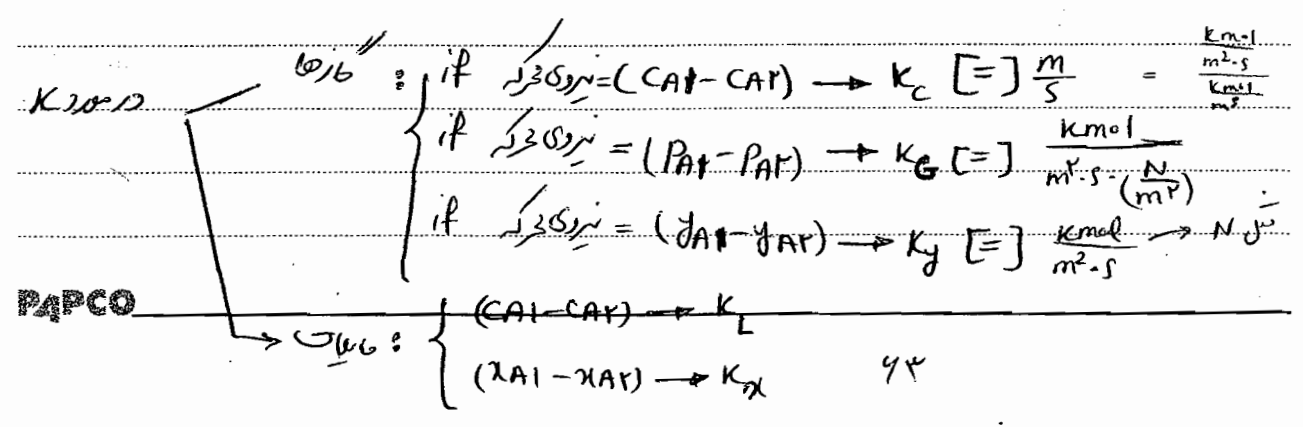 گازها : if نیروی محرکه = (CA1 - CA۲) → K_c [=] m/s = (kmol/m2·s)/(kmol/m3)
در مورد K
if نیروی محرکه = (PA1 - PA۲) → K_G [=] kmol/(m۲·s·(N/m۲))
if نیروی محرکه = (yA1 - yA۲) → K_y [=] kmol/(m2·s) → N مثل
PAPCO
مایعات : (CA1 - CA۲) → K_L
(xA1 - xA۲) → K_x
۶۳